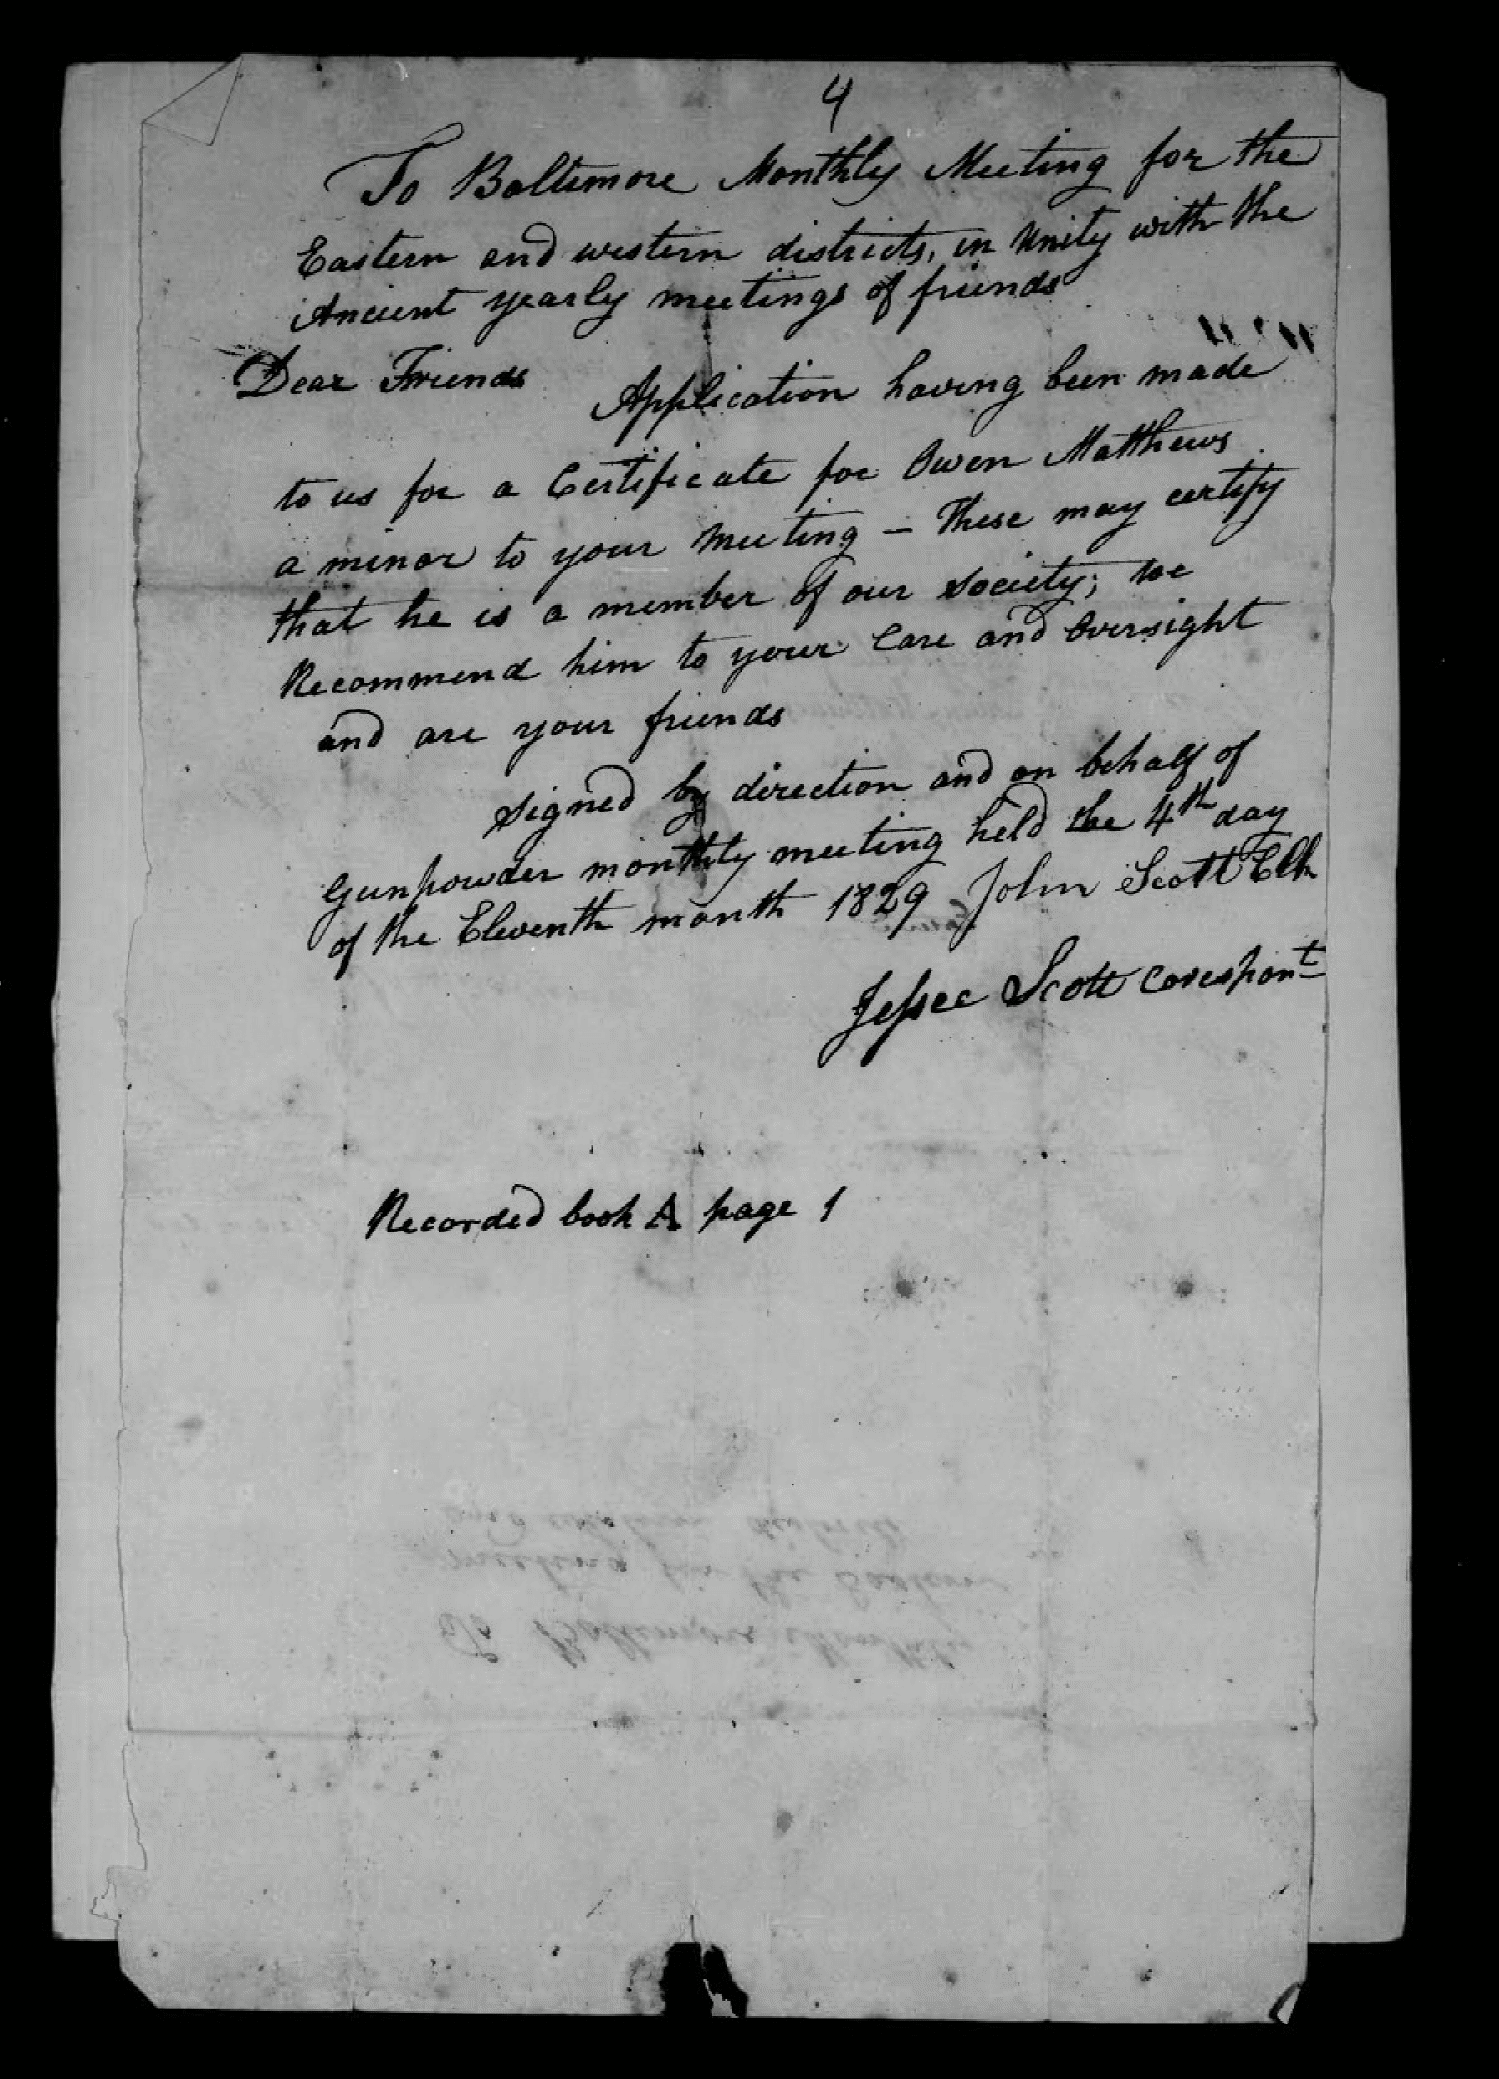 4
To Baltimore Monthly Meeting for the
Eastern and western districts, in Unity with the
Ancient yearly meetings of friends
Dear Friends
Application having been made
to us for a Certificate for Owen Matthews
a minor to your Meeting – These may certify
that he is a member of our Society; we
Recommend him to your Care and Oversight
and are your friends
Signed by direction and on behalf of
Gunpowder monthly meeting held the 4th day
of the Eleventh month 1829 John Scott Clk
Jessee Scott Corespont
Recorded book A page 1
To Baltimore Monthly
meeting for the Eastern
and western districts